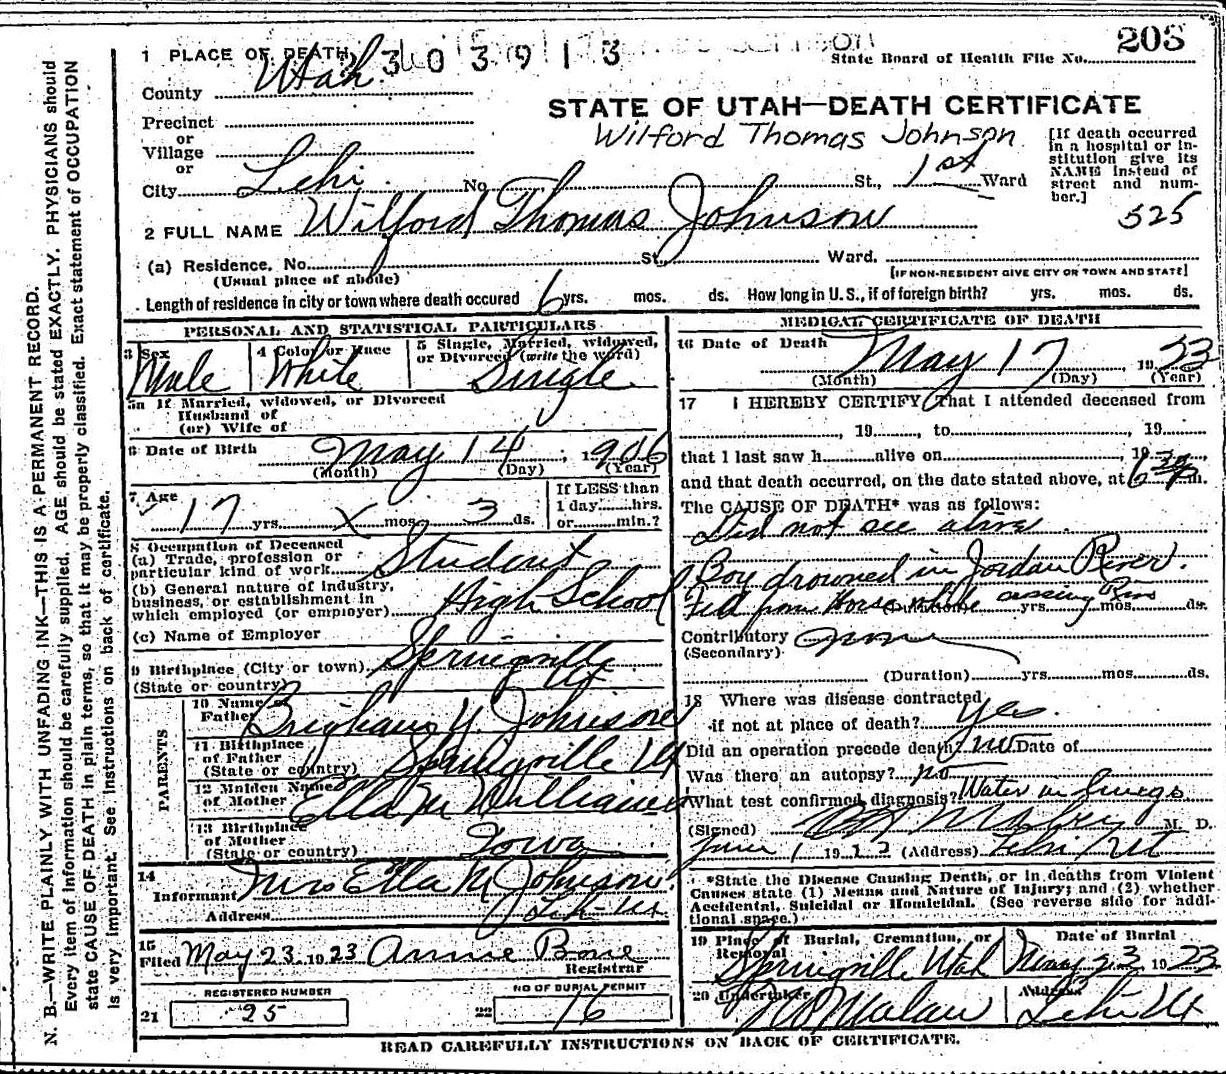 N. B.—WRITE PLAINLY WITH UNFADING INK—THIS IS A PERMANENT RECORD.
Every item of information should be carefully supplied. AGE should be stated EXACTLY. PHYSICIANS should
state CAUSE OF DEATH in plain terms, so that it may be properly classified. Exact statement of OCCUPATION
is very important. See Instructions on back of certificate.
1 PLACE OF DEATH
303913
203
State Board of Health File No.
County Utah
STATE OF UTAH—DEATH CERTIFICATE
Precinct
or
Village
or
Wilford Thomas Johnson
City Lehi No. St., 1st Ward
[If death occurred
in a hospital or in-
stitution give its
NAME instead of
street and num-
ber.]
525
2 FULL NAME Wilford Thomas Johnson
(a) Residence. No. St. Ward.
(Usual place of abode)
[IF NON-RESIDENT GIVE CITY OR TOWN AND STATE]
Length of residence in city or town where death occured 6 yrs. mos. ds. How long in U. S., if of foreign birth? yrs. mos. ds.
PERSONAL AND STATISTICAL PARTICULARS
3 Sex
Male
4 Color or Race
White
5 Single, Married, widowed,
or Divorced (write the word)
Single
5a If Married, widowed, or Divorced
Husband of
(or) Wife of
6 Date of Birth May 14, 1906
(Month) (Day) (Year)
7 Age
17 yrs. X mos. 3 ds.
If LESS than
1 day hrs.
or min.?
8 Occupation of Deceased
(a) Trade, profession or
particular kind of work Student
(b) General nature of industry,
business, or establishment in
which employed (or employer) High School
(c) Name of Employer
9 Birthplace (City or town) Springville
(State or country) Ut
PARENTS
10 Name of
Father Brigham Y. Johnson
11 Birthplace
of Father
(State or country) Springville Ut
12 Maiden Name
of Mother Ella M Williams
13 Birthplace
of Mother
(State or country) Iowa
14
Informant Mrs Ella M Johnson
Address Lehi Ut
15
Filed May 23 1923 Annie Bone
Registrar
REGISTERED NUMBER
21 25
NO OF BURIAL PERMIT
22 16
MEDICAL CERTIFICATE OF DEATH
16 Date of Death May 17 1923
(Month) (Day) (Year)
17 I HEREBY CERTIFY, That I attended deceased from
, 19 , to , 19
that I last saw h alive on , 19 ,
and that death occurred, on the date stated above, at 6 30 P m.
The CAUSE OF DEATH* was as follows:
Did not see alive
Boy drowned in Jordan River.
from Horse while crossing yrs. mos. ds.
Contributory none
(Secondary)
(Duration) yrs. mos. ds.
18 Where was disease contracted
if not at place of death? Yes.
Did an operation precede death? no Date of
Was there an autopsy? no
What test confirmed diagnosis? Water in lungs
(Signed) M. D.
June 1 19 (Address) Lehi Ut
*State the Disease Causing Death, or in deaths from Violent
Causes state (1) Means and Nature of Injury; and (2) whether
Accidental, Suicidal or Homicidal. (See reverse side for addi-
tional space.)
19 Place of Burial, Cremation, or
Removal
Springville Utah
Date of Burial
May 23 1923
20 Undertaker
Address
Lehi Ut
READ CAREFULLY INSTRUCTIONS ON BACK OF CERTIFICATE.